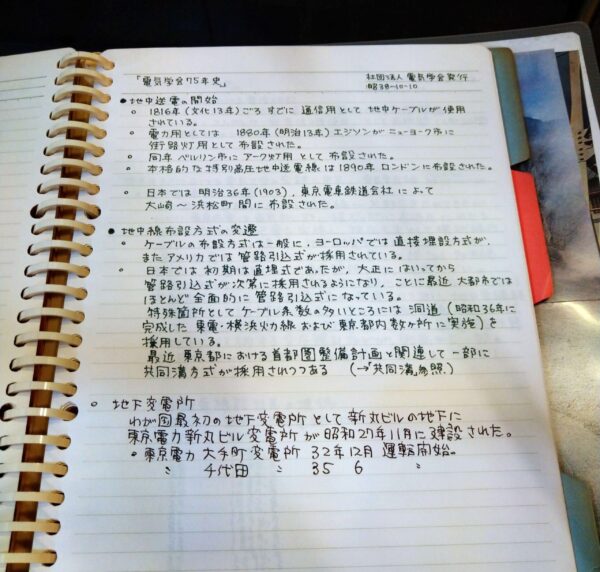 「電気学会75年史」
社団法人 電気学会発行
昭38-10-10
●地中送電の開始
○ 1816年(文化13年)ごろ すでに 通信用として 地中ケーブルが使用
されている。
○ 電力用としては 1880年(明治13年)エジソンがニューヨーク市に
街路灯用として布設された。
○ 同年 ベルリン市に アーク灯用 として 布設された。
○ 本格的な特別高圧地中送電線は1890年 ロンドンに布設された。
○ 日本では 明治36年(1903)、東京電車鉄道会社 によって
大崎～浜松町 間に 布設された。
●地中線布設方式の変遷
○ ケーブルの布設方式は一般に、ヨーロッパでは直接埋設方式が、
またアメリカでは管路引込式が採用されている。
○ 日本では 初期は直埋式であったが、大正にはいってから
管路引込式が次第に採用されるようになり、ことに最近 大都市では
ほとんど全面的に管路引込式になっている。
特殊箇所としてケーブル条数の多いところには 洞道(昭和36年に
完成した 東電・横浜火力線 および 東京都内数か所に実施)を
採用している。
最近 東京都における首都圏整備計画と関連して一部に
共同溝方式が採用されつつある (→共同溝参照)
○ 地下変電所
わが国最初の地下変電所として新丸ビルの地下に
東京電力新丸ビル変電所が昭和27年11月に建設された。
○ 東京電力 大手町変電所 32年12月 運転開始。
〃 千代田 〃 35 6 〃